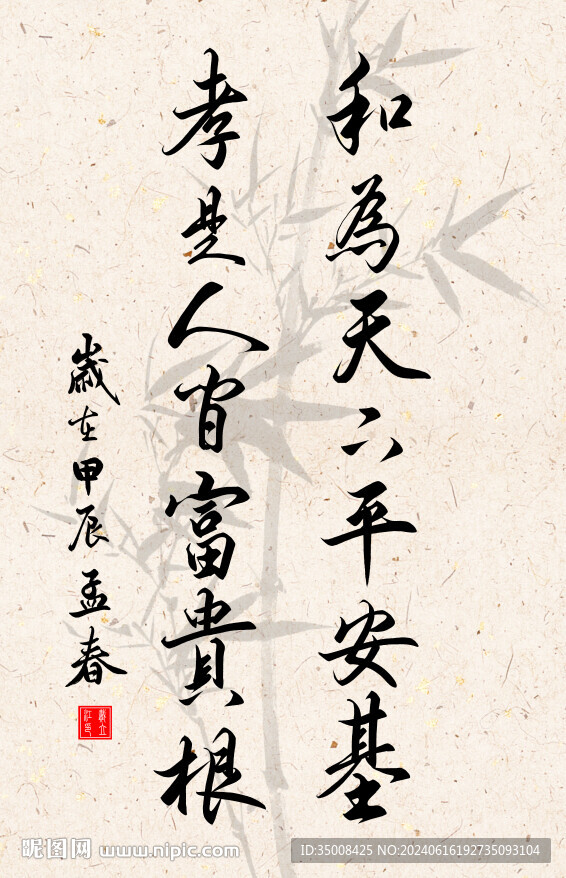 和為天下平安基
孝是人間富貴根
歲在甲辰孟春
昵图网 www.nipic.com
ID:35008425 NO:20240616192735093104